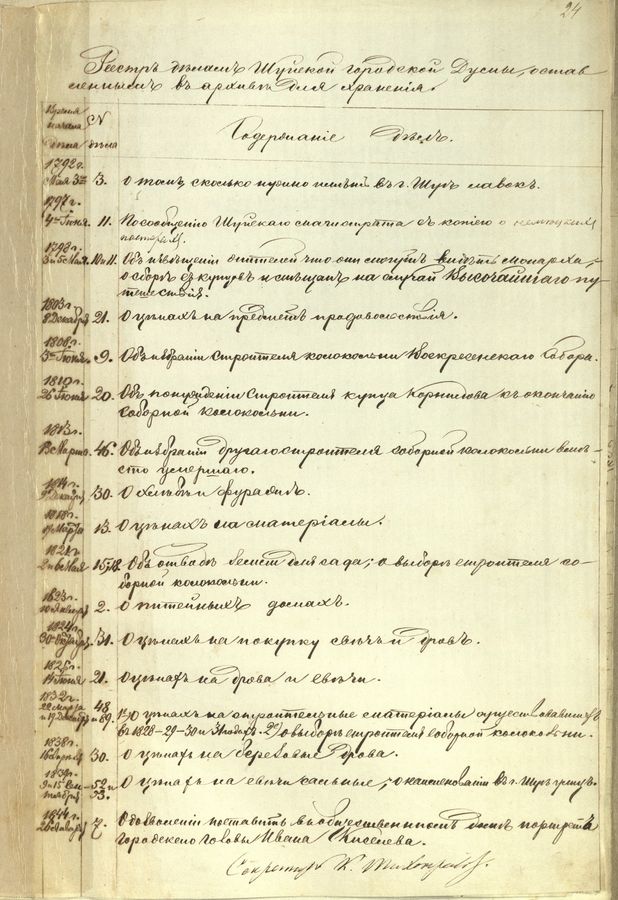 24
Реестръ дѣламъ Шуйской городской Думы, остав
леннымъ въ архивѣ для храненія.
Время начала дѣла
N дѣла
Содержаніе дѣлъ.
1792 г.
Мая 3го 3. О томъ, сколько нужно имѣть въ г. Шуѣ лавокъ.
1797 г.
4го Іюня. 11. По сообщенію Шуйскаго магистрата съ копіею о немецкихъ
пасторахъ.
1798 г.
3 и 5 Мая. 10 и 11. Объ извѣщеніи жителей что они могутъ видѣть монарха;
о сборѣ съ купцовъ и мѣщанъ на случай Высочайшаго пу-
тешествія.
1803 г.
8 Декабря 21. О цѣнахъ на предметы продовольствія.
1808 г.
3го Іюня. 9. Объ избраніи строителя колокольни Воскресенскаго Собора.
1810 г.
26 Іюня 20. Объ понужденіи строителя купца Корнилова къ окончанію
соборной колокольни.
1813 г.
13 Марта. 46. Объ избраніи другаго строителя соборной колокольни вмѣ-
сто умершаго.
1814 г.
9 Декабря 30. О хлѣбѣ и фуражѣ.
1818 г.
19 Марта 13. О цѣнахъ на матеріалы.
1821 г.
2 и 6 Мая 15, 18. Объ отводѣ мѣста для сада; о выборѣ строителя со-
борной колокольни.
1823 г.
10 Января 2. О питейныхъ домахъ.
1824 г.
30 Октября 31. О цѣнахъ на покупку свѣчъ и дровъ.
1825 г.
14 Іюня 21. О цѣнахъ на дрова и свѣчи.
1832 г.
22 Марта и 19 Декабря 48 и 89. 1) О цѣнахъ на строительные матеріалы существовавшихъ
въ 1828-29-30 и 31 годахъ. 2) о выборѣ строителя соборной колокольни.
1838 г.
16 30. О цѣнахъ на березовые дрова.
1839 г.
9 и 15 Сен-тября 52 и 53. О цѣнахъ на свѣчи сальные; о наименованіи въ г. Шуѣ улицъ.
1844 г.
26 Января 7. О дозволеніи поставить въ общественномъ домѣ портретъ
городскаго головы Ивана Киселева.
Секретарь К. Тихонравовъ.